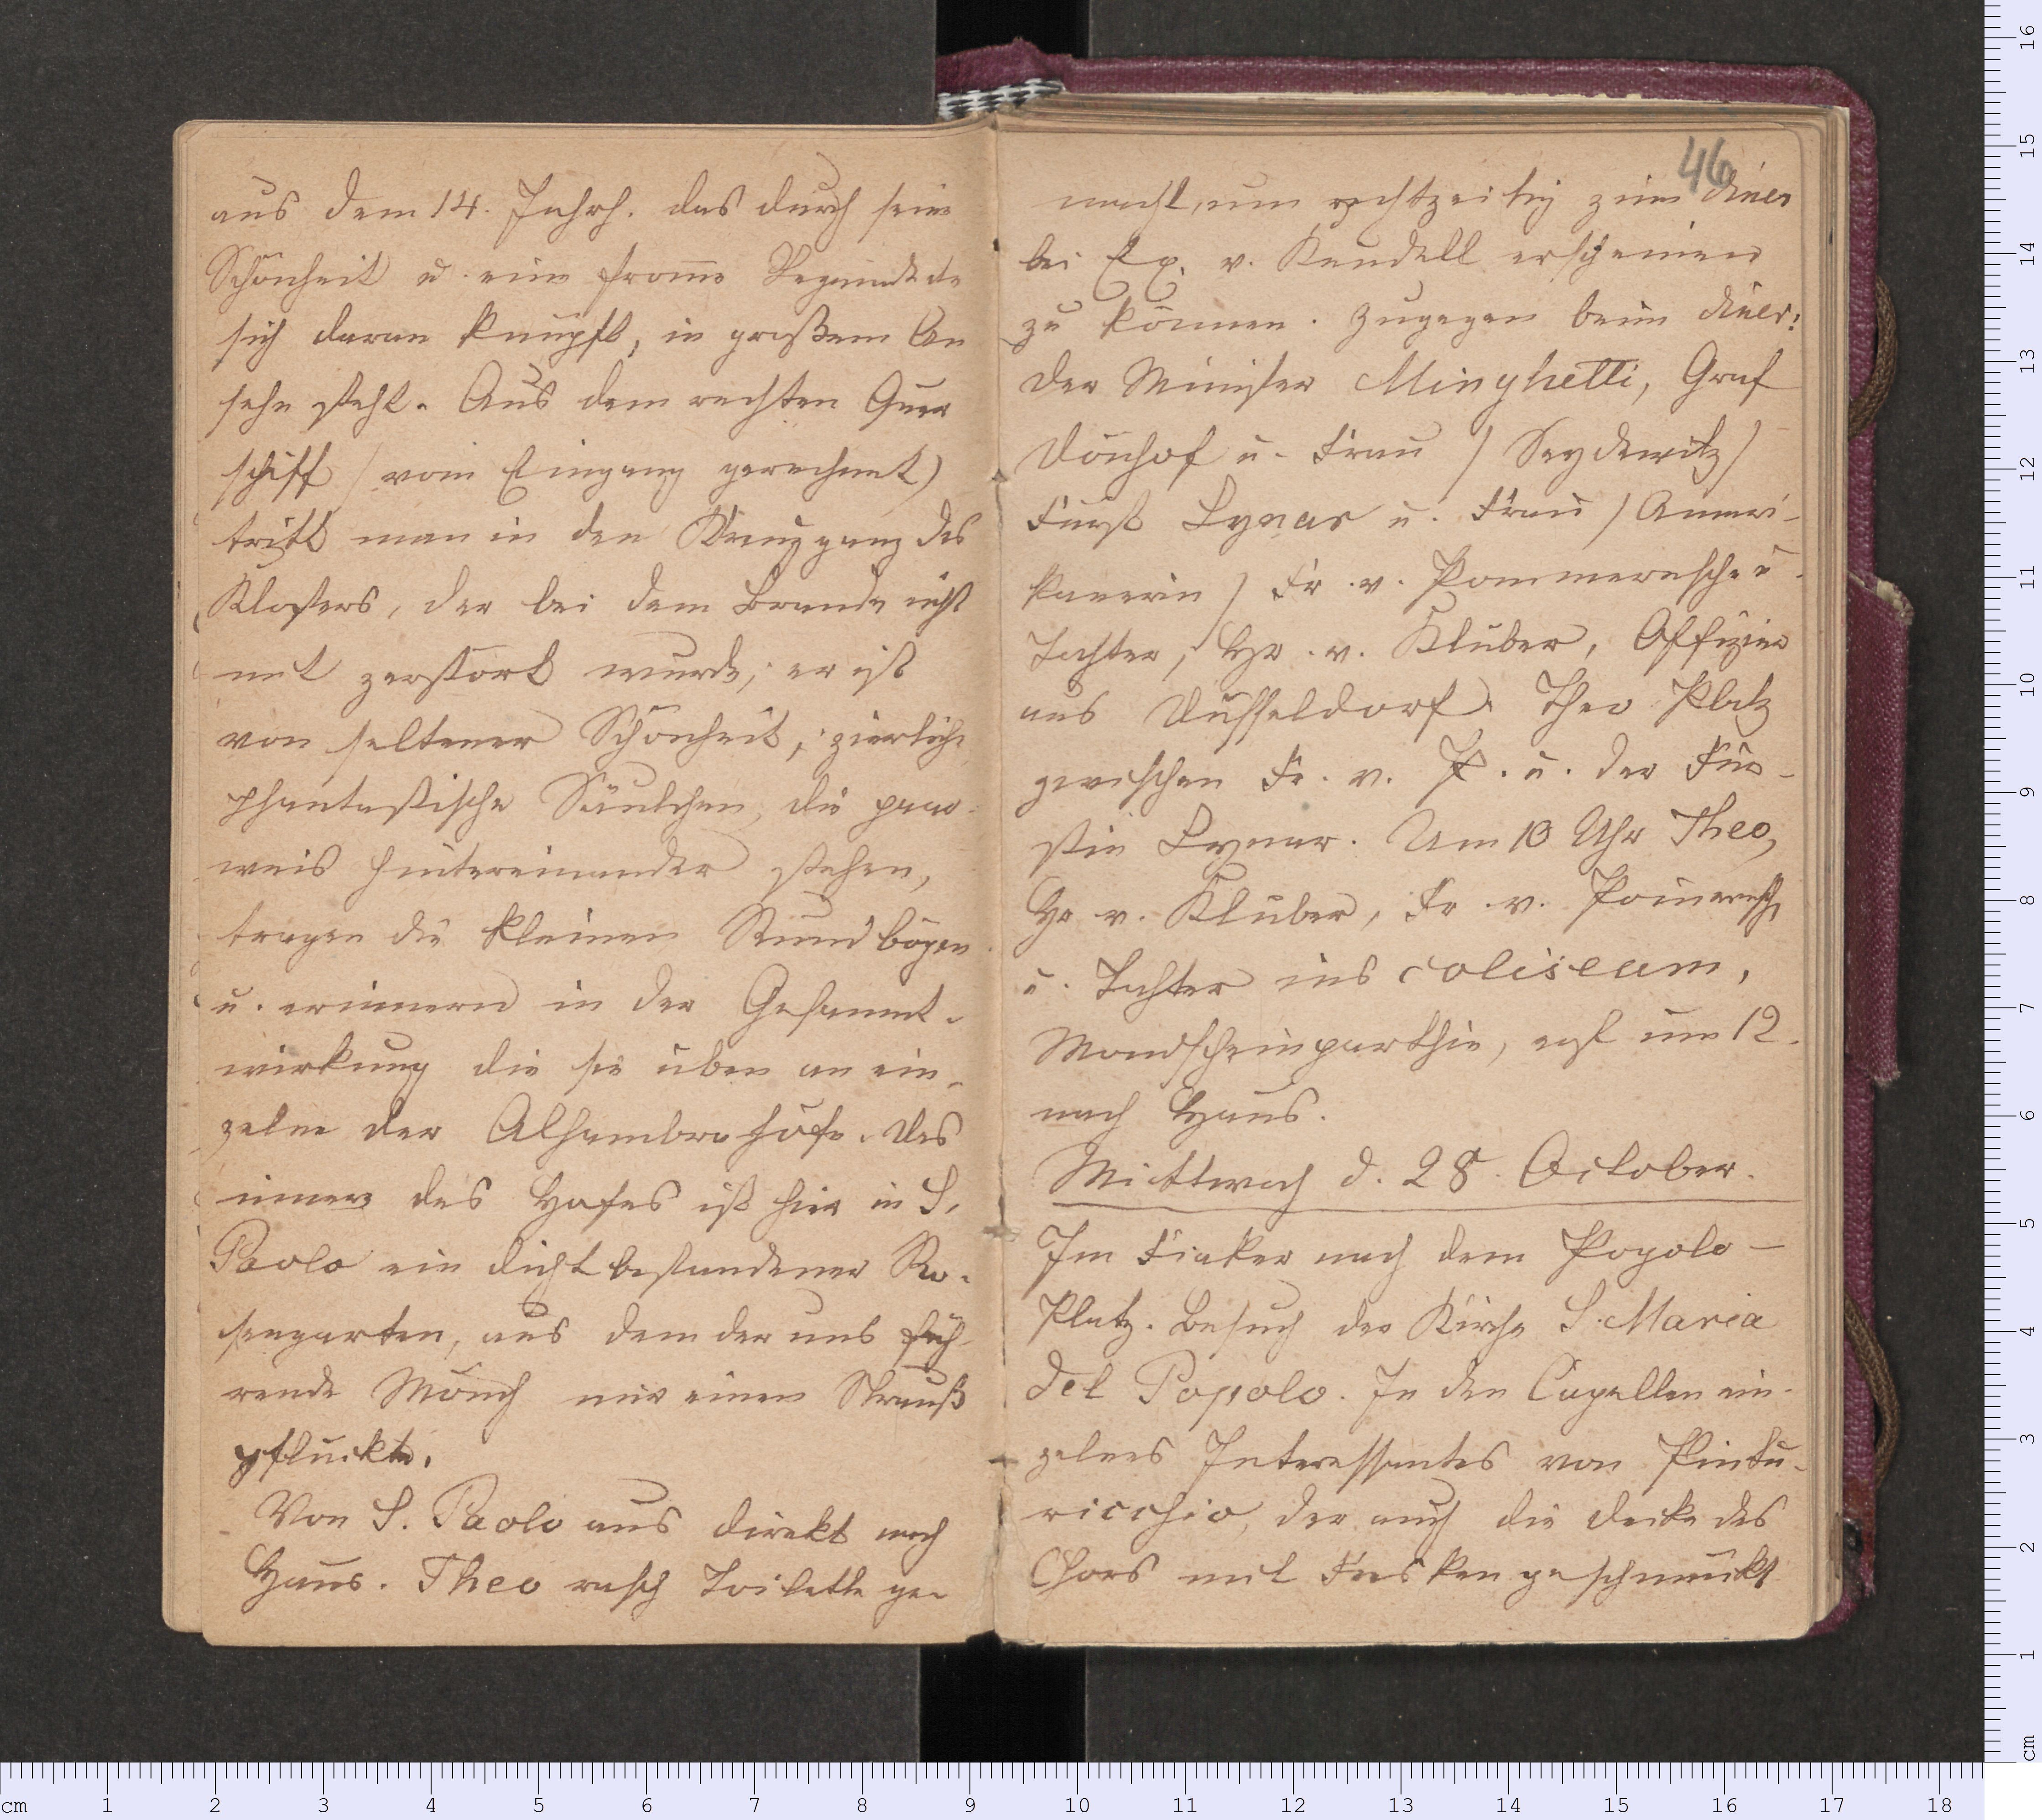 aus dem 14. Jahrh. das durch seine
Schönheit u. eine fromme Legende die
sich daran knüpft, in großem An
sehn steht. Aus dem rechten Quer
schiff (vom Eingang gerechnet)
tritt man in den Kreuzgang des
Klosters, der bei dem Brande nicht
mit zerstört wurde; er ist
von seltener Schönheit; zierliche
phantastische Säulchen, die paar-
weis hintereinander stehen,
tragen die kleinen Rundbögen
u. erinnern in der Gesammt-
wirkung die sie üben an ein-
zelne der Alhambrahöfe. Das
innere des Hofes ist hier in S.
Paolo ein dicht bestandener Ro-
sengarten, aus dem der uns füh-
rende Mönch mir einen Strauß
pflückte.
Von S. Paolo aus direkt nach
Haus. Theo rasch Toilette ge-
46
macht, um rechtzeitig zum diner
bei Ex. v. Keudell erscheinen
zu können. Zugegen beim diner:
der Minister Minghetti, Graf
Dönhof u. Frau (Seydewitz)
Fürst Lynar u. Frau (Ameri-
kanerin) Fr. v. Pommeresche u.
Tochter, Hr. v. Klüber, Offizier
aus Düsseldorf. Theo Platz
zwischen Fr. v. P. u. der Für-
stin Lynar. Um 10 Uhr Theo,
Hr v. Klüber, Fr. v. Pomeresche
u. Tochter ins coliseum,
Mondscheinparthie, erst um 12.
nach Haus.
Mittwoch d. 28. October.
Im Fiaker nach dem Popolo-
Platz. Besuch der Kirche S. Maria
del Popolo. In den Capellen ein-
zelnes Interessantes von Pintu-
ricchio, der auch die Decke des
Chors mit Fresken geschmückt
cm 1 2 3 4 5 6 7 8 9 10 11 12 13 14 15 16 17 18
cm 1 2 3 4 5 6 7 8 9 10 11 12 13 14 15 16